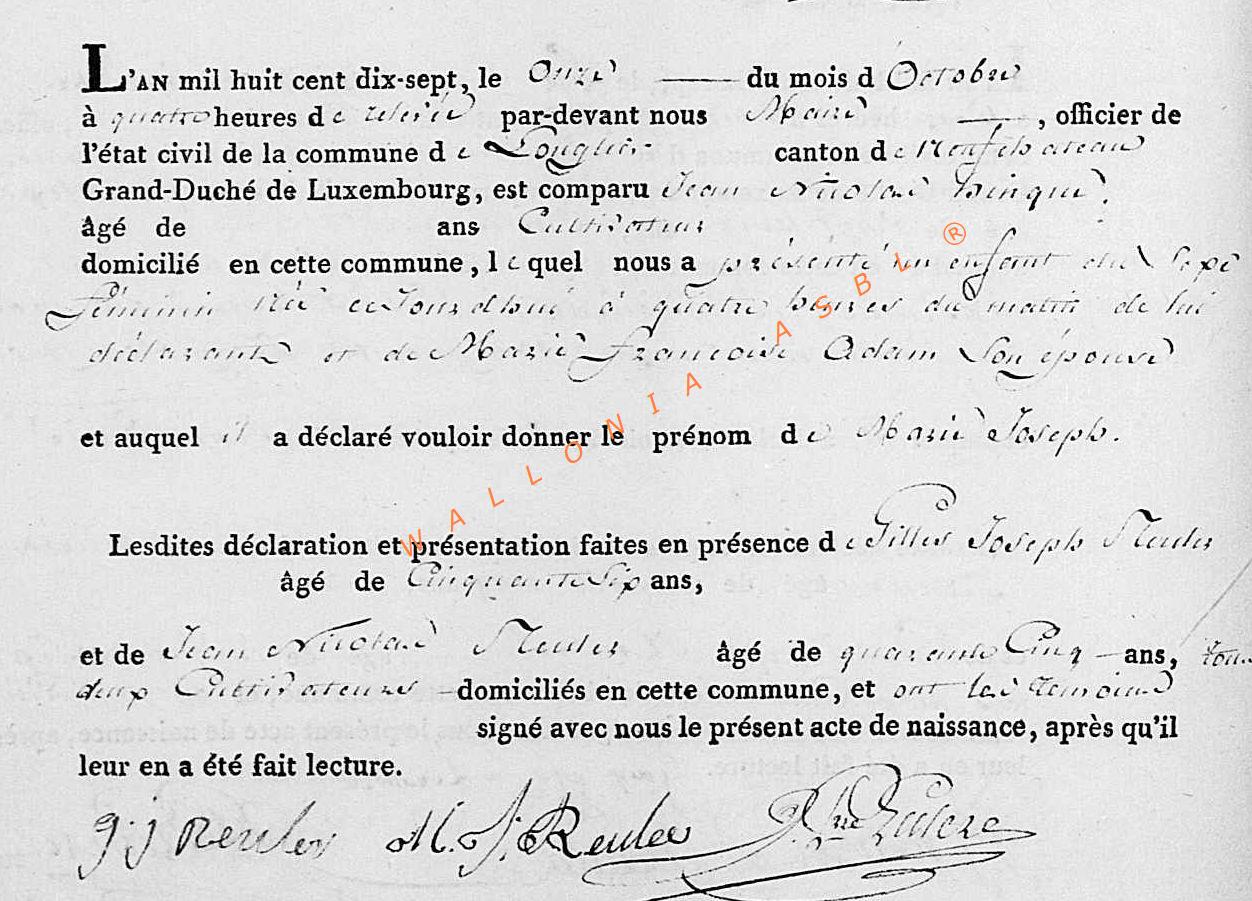 L'AN mil huit cent dix-sept, le Onze du mois d Octobre
à quatre heures de relevée par-devant nous Maire , officier de
l'état civil de la commune de Longlier canton de Neufchateau
Grand-Duché de Luxembourg, est comparu Jean Nicolas
âgé de ans Cultivateur
domicilié en cette commune, le quel nous a présenté un enfant du Sexe
féminin née cejourdhui à quatre heures du matin de lui
déclarant et de Marie françoise Adam Son épouse
et auquel il a déclaré vouloir donner le prénom de Marie Joseph.
Lesdites déclaration et présentation faites en présence de Gilles Joseph Reuler
âgé de Cinquante Six ans,
et de Jean Nicolas Reuler âgé de quarante Cinq ans, tous
deux Cultivateurs domiciliés en cette commune, et ont les temoins
signé avec nous le présent acte de naissance, après qu'il
leur en a été fait lecture.
g. j Reuler J. Reuler
WALLONIA ASBL ®